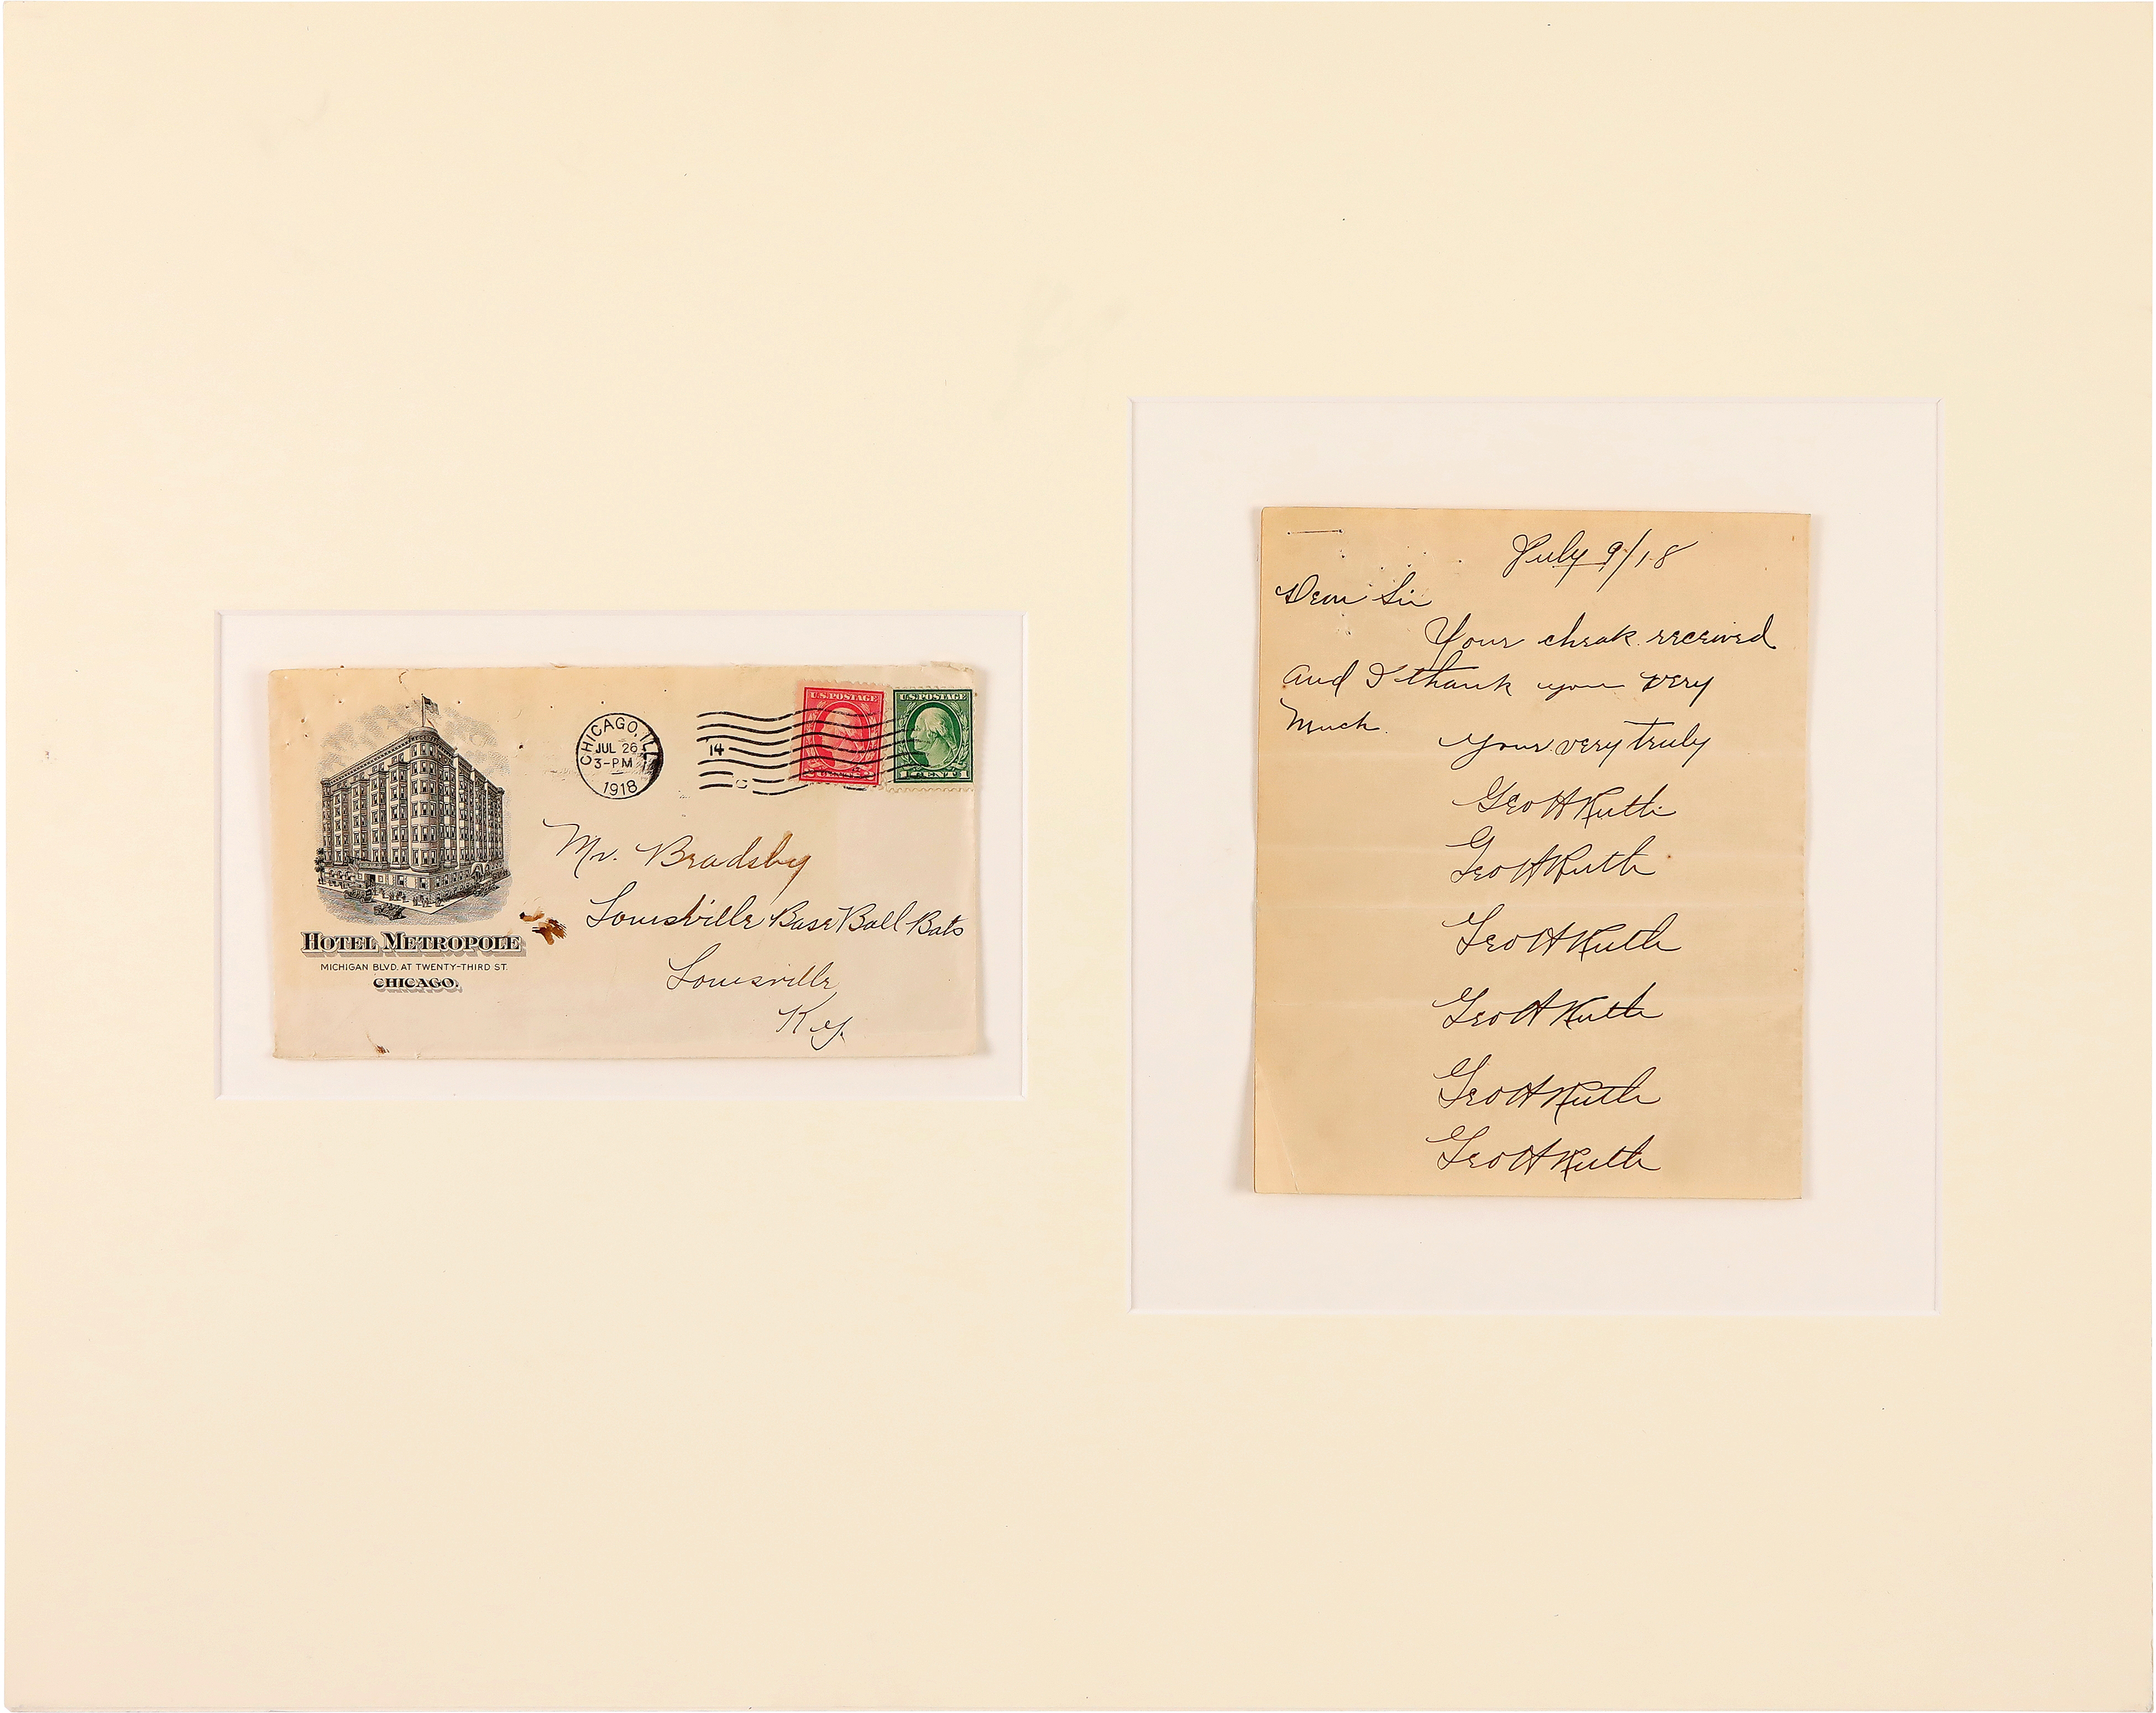 CHICAGO, ILL.
JUL 26
3-PM
1918
14
C
U.S. POSTAGE
U.S. POSTAGE
HOTEL METROPOLE
MICHIGAN BLVD. AT TWENTY-THIRD ST.
CHICAGO.
Mr. Bradsby
Louisville Base Ball Bats
Louisville
Ky.
July 9/18
Dear Sir
Your cheak received
and I thank you very
much.
Your very truly
Geo H Ruth
Geo H Ruth
Geo H Ruth
Geo H Ruth
Geo H Ruth
Geo H Ruth